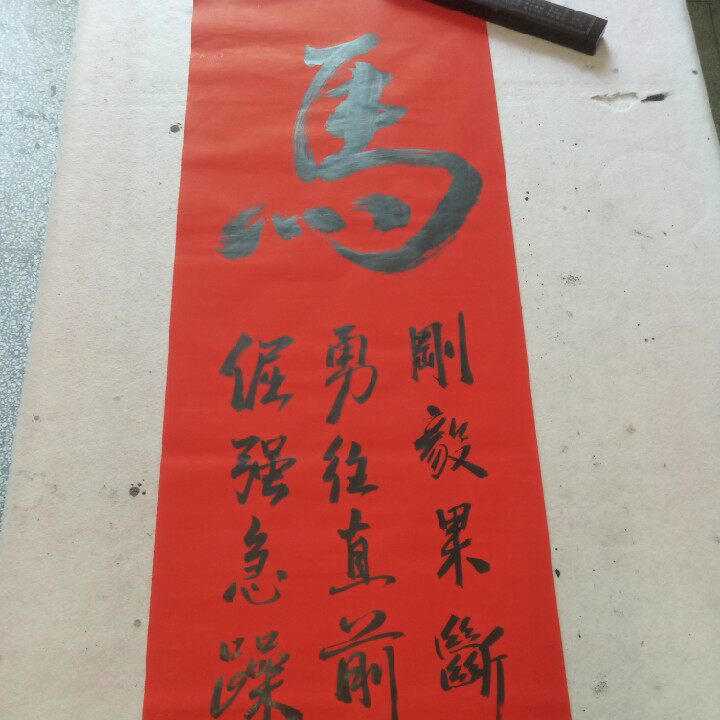 馬
剛毅果斷
勇往直前
倔强急躁